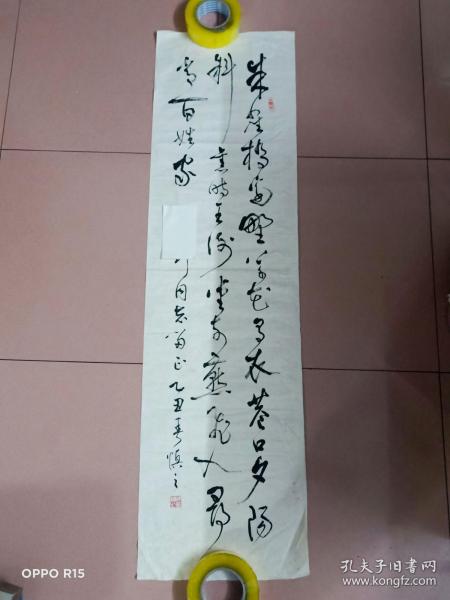 朱雀桥边野草花乌衣巷口夕阳
斜旧时王谢堂前燕飞入寻
常百姓家
同志留正乙丑春慎之
OPPO R15
孔夫子旧书网
www.kongfz.com